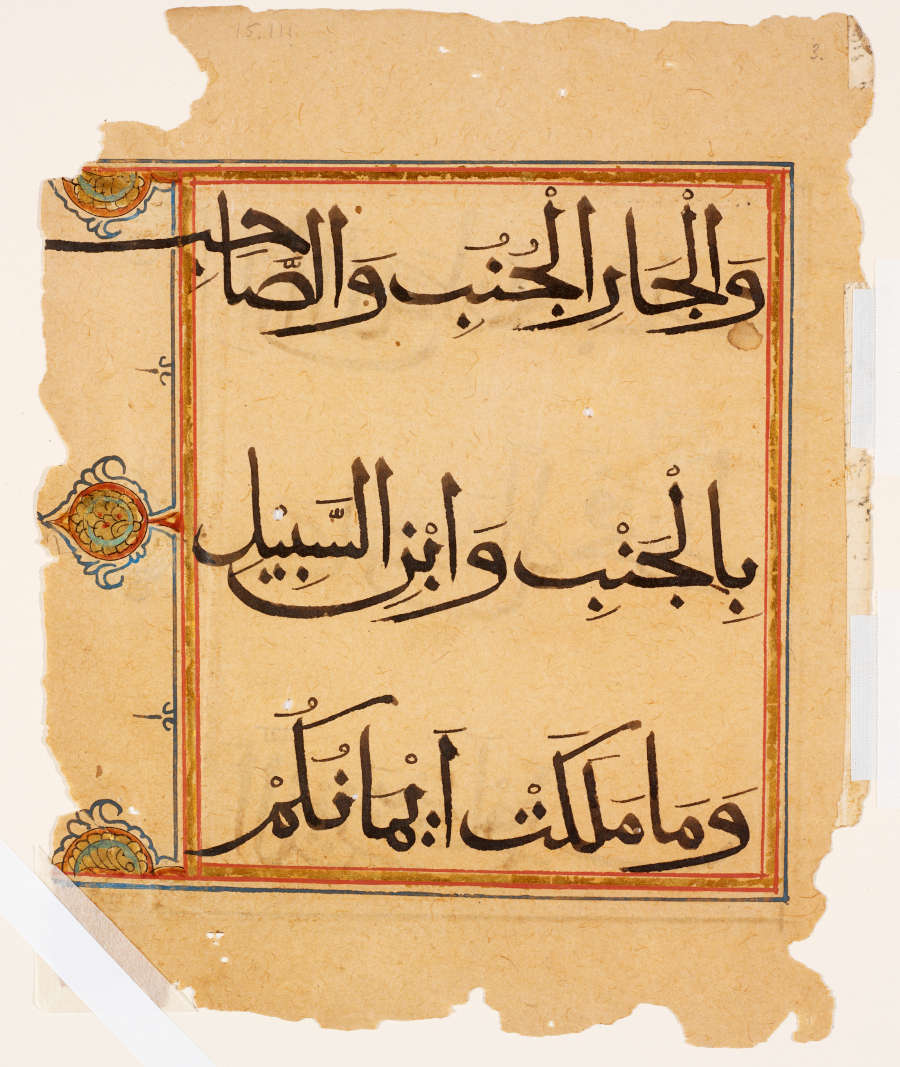 15.111.
3.
وَالْجَارِ الْجُنُبِ وَالصَّاحِبِ
بِالْجَنْبِ وَابْنِ السَّبِيْلِ
وَمَا مَلَكَتْ اَيْمَانُكُمْ